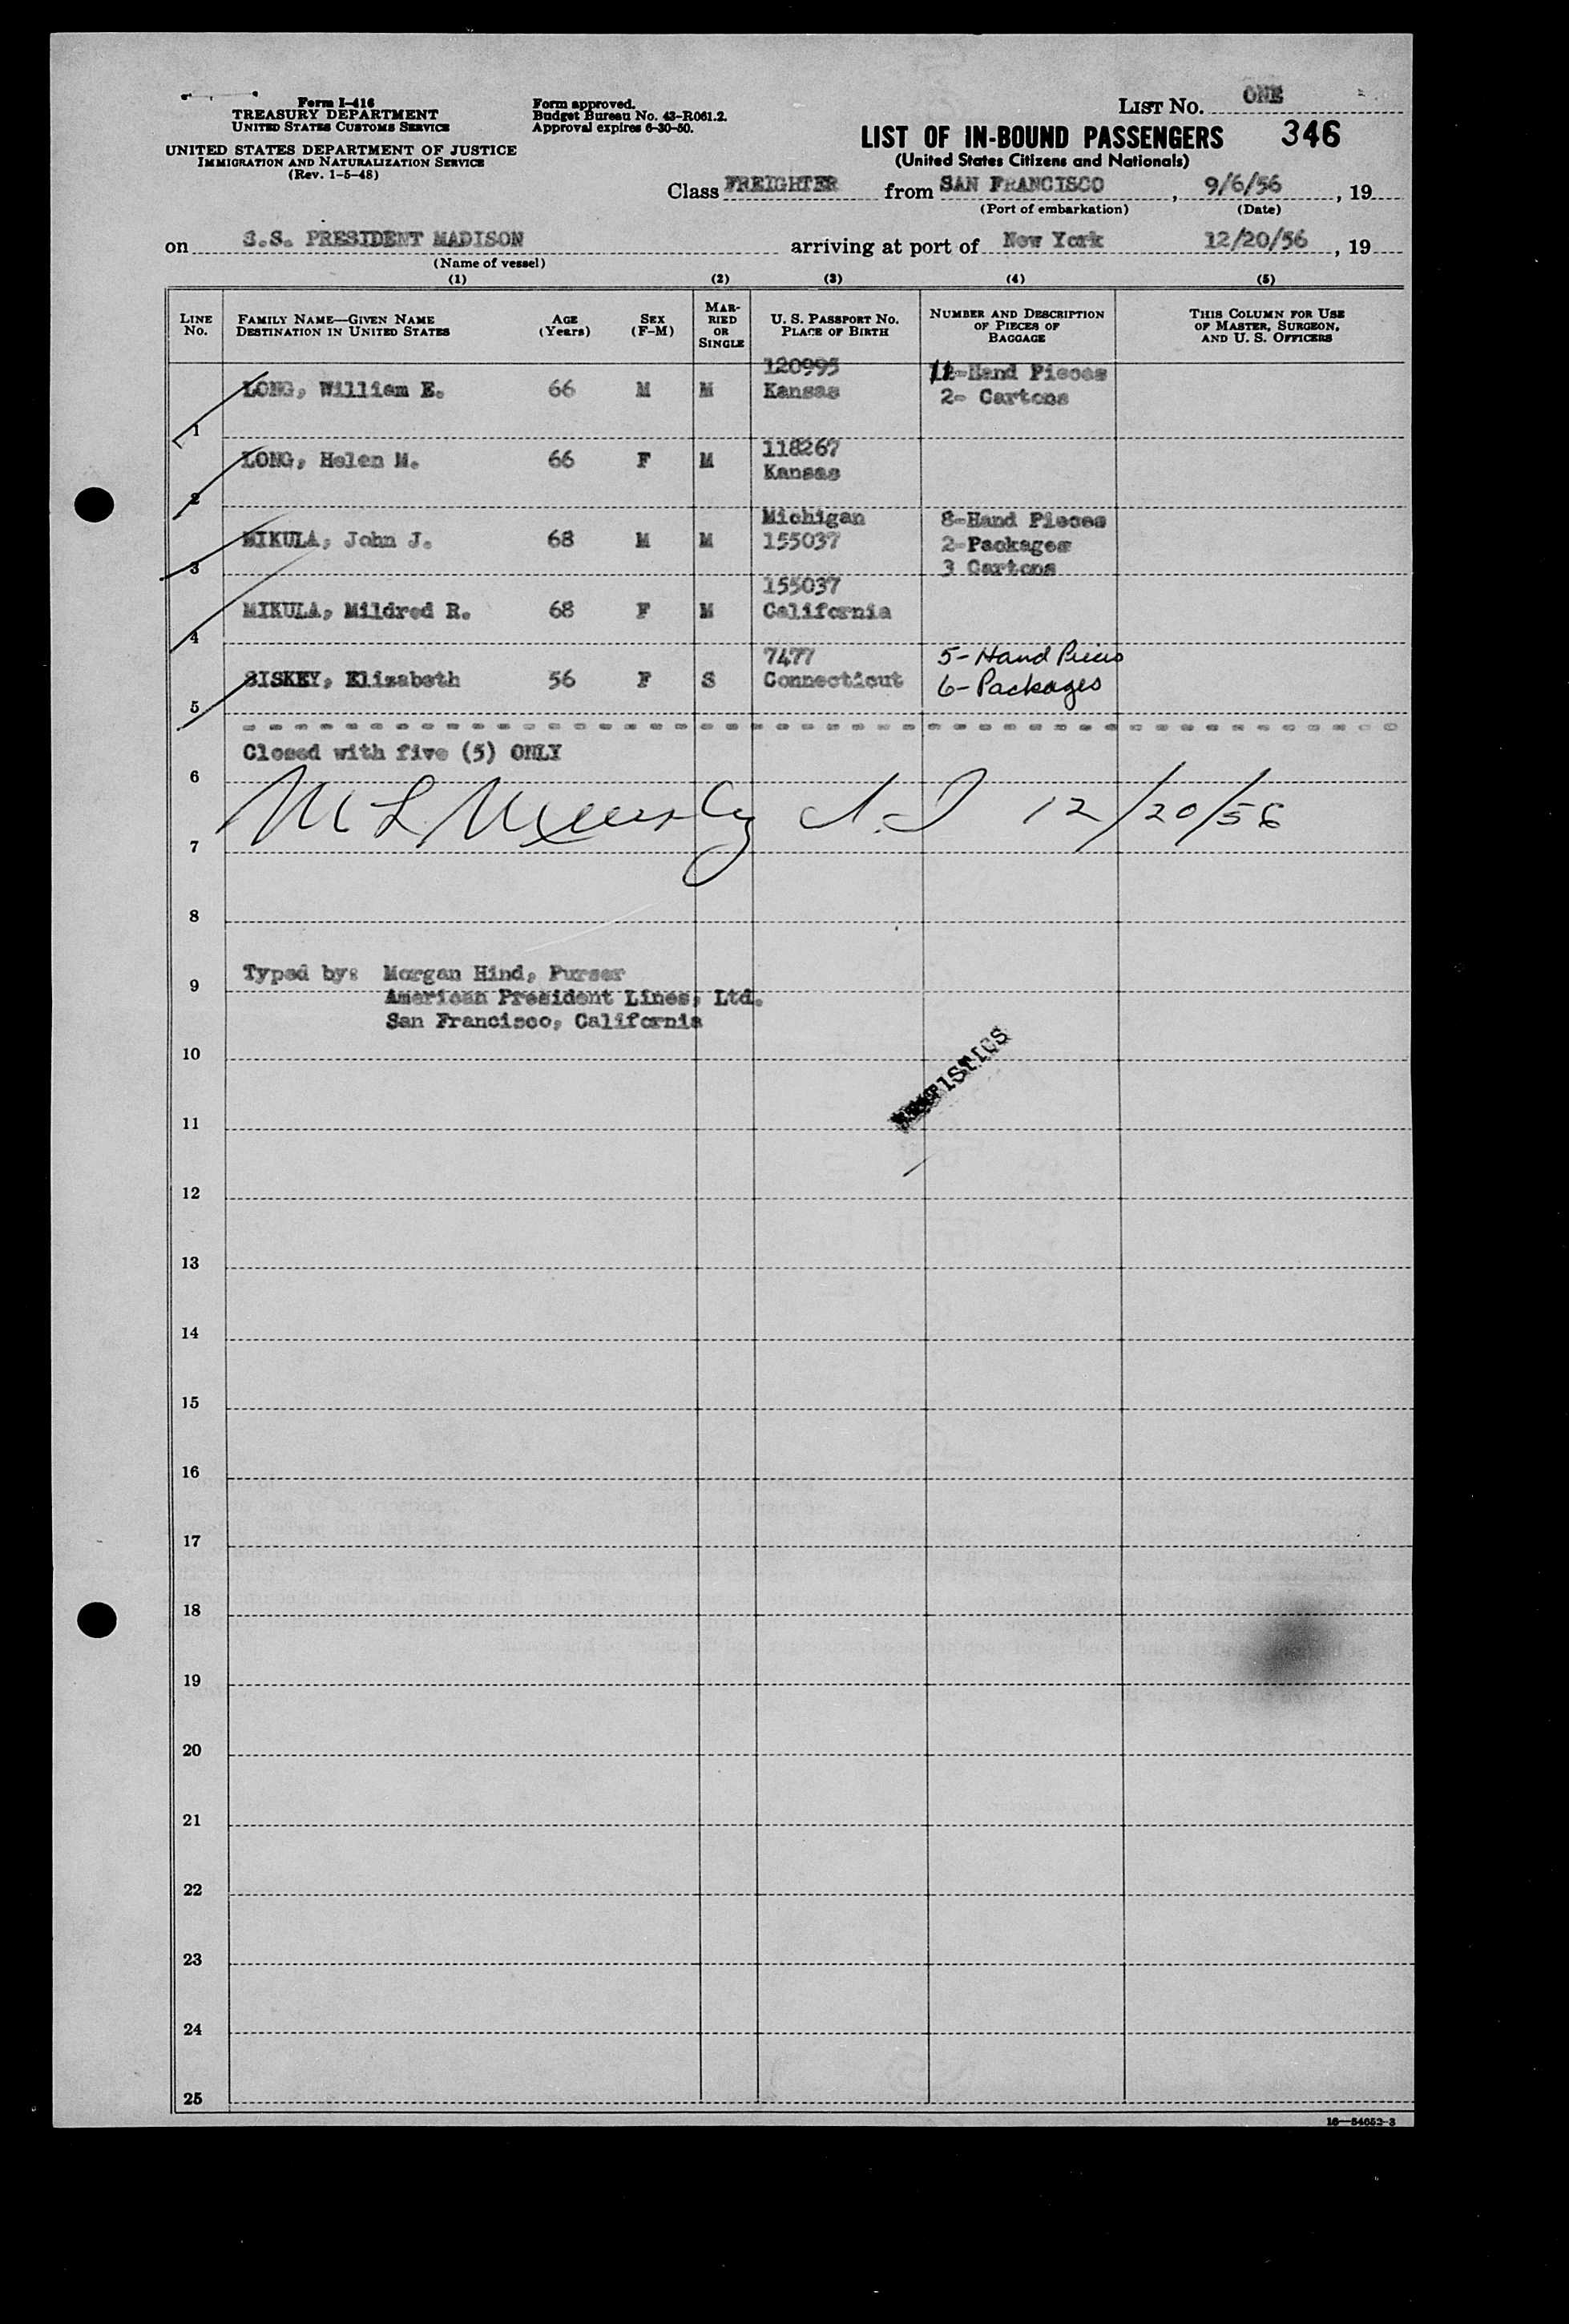 Form I-416
TREASURY DEPARTMENT
UNITED STATES CUSTOMS SERVICE
UNITED STATES DEPARTMENT OF JUSTICE
IMMIGRATION AND NATURALIZATION SERVICE
(Rev. 1-5-48)
Form approved.
Budget Bureau No. 43-R061.2.
Approval expires 6-30-50.
LIST NO. ONE
LIST OF IN-BOUND PASSENGERS 346
(United States Citizens and Nationals)
Class FREIGHTER from SAN FRANCISCO, 9/6/56, 19
(Port of embarkation) (Date)
on S.S. PRESIDENT MADISON arriving at port of New York 12/20/56, 19
(Name of vessel)
(1) (2) (3) (4) (5)
LINE NO. FAMILY NAME—GIVEN NAME DESTINATION IN UNITED STATES AGE (Years) SEX (F-M) MARRIED OR SINGLE U. S. PASSPORT NO. PLACE OF BIRTH NUMBER AND DESCRIPTION OF PIECES OF BAGGAGE THIS COLUMN FOR USE OF MASTER, SURGEON, AND U. S. OFFICERS
120995 11-Hand Pieces
1 LONG, William E. 66 M M Kansas 2- Cartons
118267
2 LONG, Helen M. 66 F M Kansas
Michigan 8-Hand Pieces
3 MIKULA, John J. 68 M M 155037 2-Packages
3 Cartons
155037
4 MIKULA, Mildred R. 68 F M California
7477 5-Hand Pieces
5 SISKEY, Elizabeth 56 F S Connecticut 6-Packages
Closed with five (5) ONLY
6
12/20/56
7
8
Typed by: Morgan Hind, Purser
9
American President Lines, Ltd.
San Francisco, California
10
11
12
13
14
15
16
17
18
19
20
21
22
23
24
25
16—54052-3